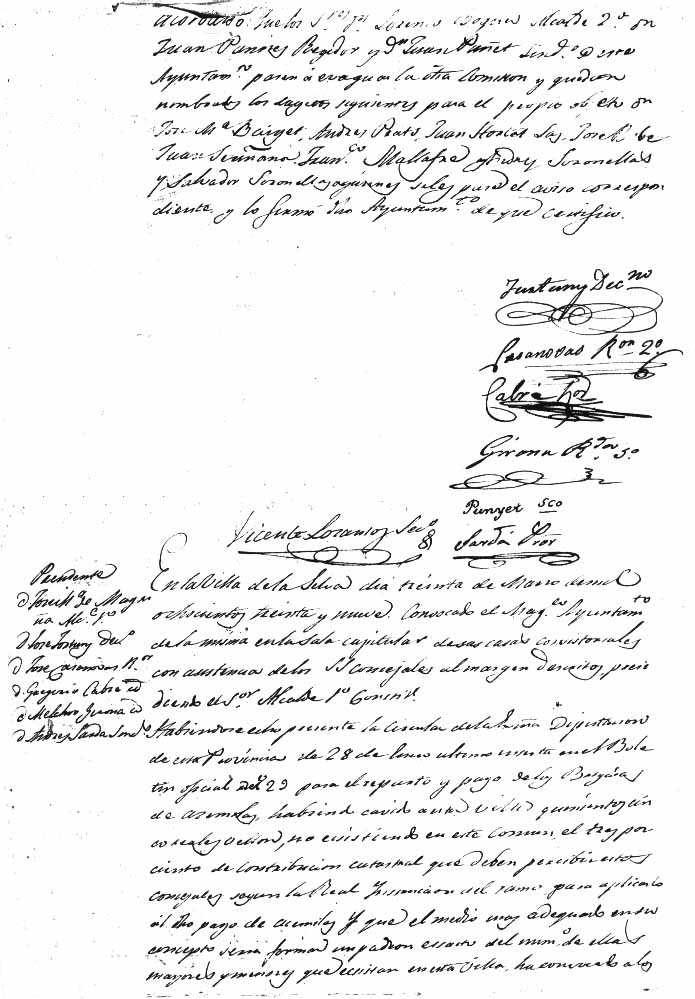 acordaron: que los S.res Dn Lorenzo Alcalde 2.o Dn
Juan Regidor y Dn Juan Puñet Sind.o de este
Ayuntam.to pasen á evaguar la otra Comision y queden
nombrados los sugetos siguientes para el propio obgeto Dn
José M.a Barget, Andres Prats, Juan
Juan Señana, Fran.co Mallafre y Soronellas
y Salvador Soronellas á quienes se les pase el aviso correspon
diente y lo firmó dho Ayuntam.to de que certifico.
Fortuny Dec.no
Casanovas R.on 2.o
Cabré
Girona R.dor 5.o
Punyet sco
Vicente Lorenzo Sec.o
Sardá Pror
Precidente
D. José M. de Magri
ña Alc. 1.o
D. Jose Fortuny Dec.
D. Jose Casanovas R.or
D. Gregorio Cabré id
D. Melchor Gerona id
D. Andres Sarda Sind.o
En la Villa de la Selva dia treinta de Marzo de mil
ochocientos treinta y nueve. Convocado el Mag.co Ayuntam.to
de la misma en la Sala Capitular de sus casas concistoriales
con asistencia de los SS Concejales al margen descritos, preci
diendo el S.or Alcalde 1.o Constl.
Habiendose echo presente la Circular de la Exma Diputacion
de esta Provincia de 28 de Enero ultimo incerta en el Bole
tin oficial 29 para el reparto y pago de las Brigadas
de acemilas, habiendo cavido a esta Villa quinientos cin
co reales vellon, no ecsistiendo en este comun el tres por
ciento de Contribucion catastral que deben percibir estos
concejales segun la Real Instruccion del ramo para aplicarlo
al dho pago de acemilas y que el medio mas adequado en su
concepto seria formar un padron exsacto del num.o de ellas
mayores y menores que ecsistan en esta Villa, ha convocado a los